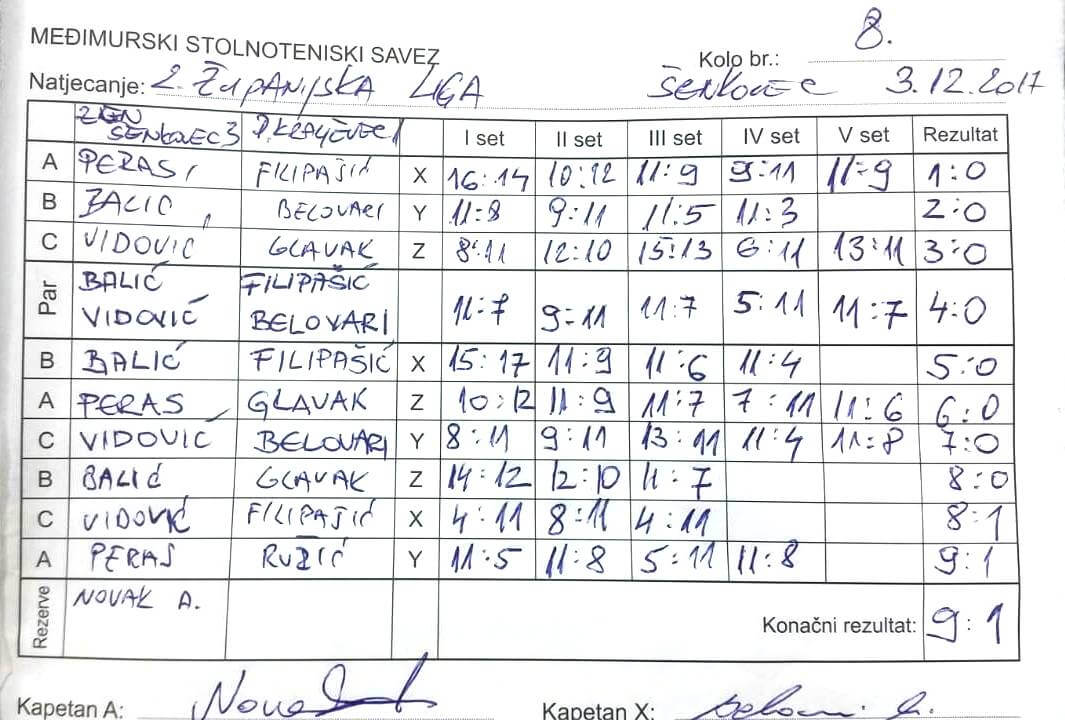 MEĐIMURSKI STOLNOTENISKI SAVEZ
Kolo br.: 8.
Natjecanje: 2. ŽUPANIJSKA LIGA ŠENKOVEC 3.12.2017
ŠENKOVEC 3 I set II set III set IV set V set Rezultat
A PERAS FILIPAŠIĆ X 16:14 10:12 11:9 9:11 11:9 1:0
B BALIĆ BELOVARI Y 11:8 9:11 11:5 11:3 2:0
C VIDOVIĆ GLAVAK Z 8:11 12:10 15:13 6:11 13:11 3:0
Par BALIĆ FILIPAŠIĆ
VIDOVIĆ BELOVARI 11:7 9:11 11:7 5:11 11:7 4:0
B BALIĆ FILIPAŠIĆ X 15:17 11:9 11:6 11:4 5:0
A PERAS GLAVAK Z 10:12 11:9 11:7 7:11 11:6 6:0
C VIDOVIĆ BELOVARI Y 8:11 9:11 13:11 11:4 11:8 7:0
B BALIĆ GLAVAK Z 14:12 12:10 11:7 8:0
C VIDOVIĆ FILIPAŠIĆ X 4:11 8:11 4:11 8:1
A PERAS RUŽIĆ Y 11:5 11:8 5:11 11:8 9:1
Rezerve NOVAK A. Konačni rezultat: 9:1
Kapetan A: Kapetan X: